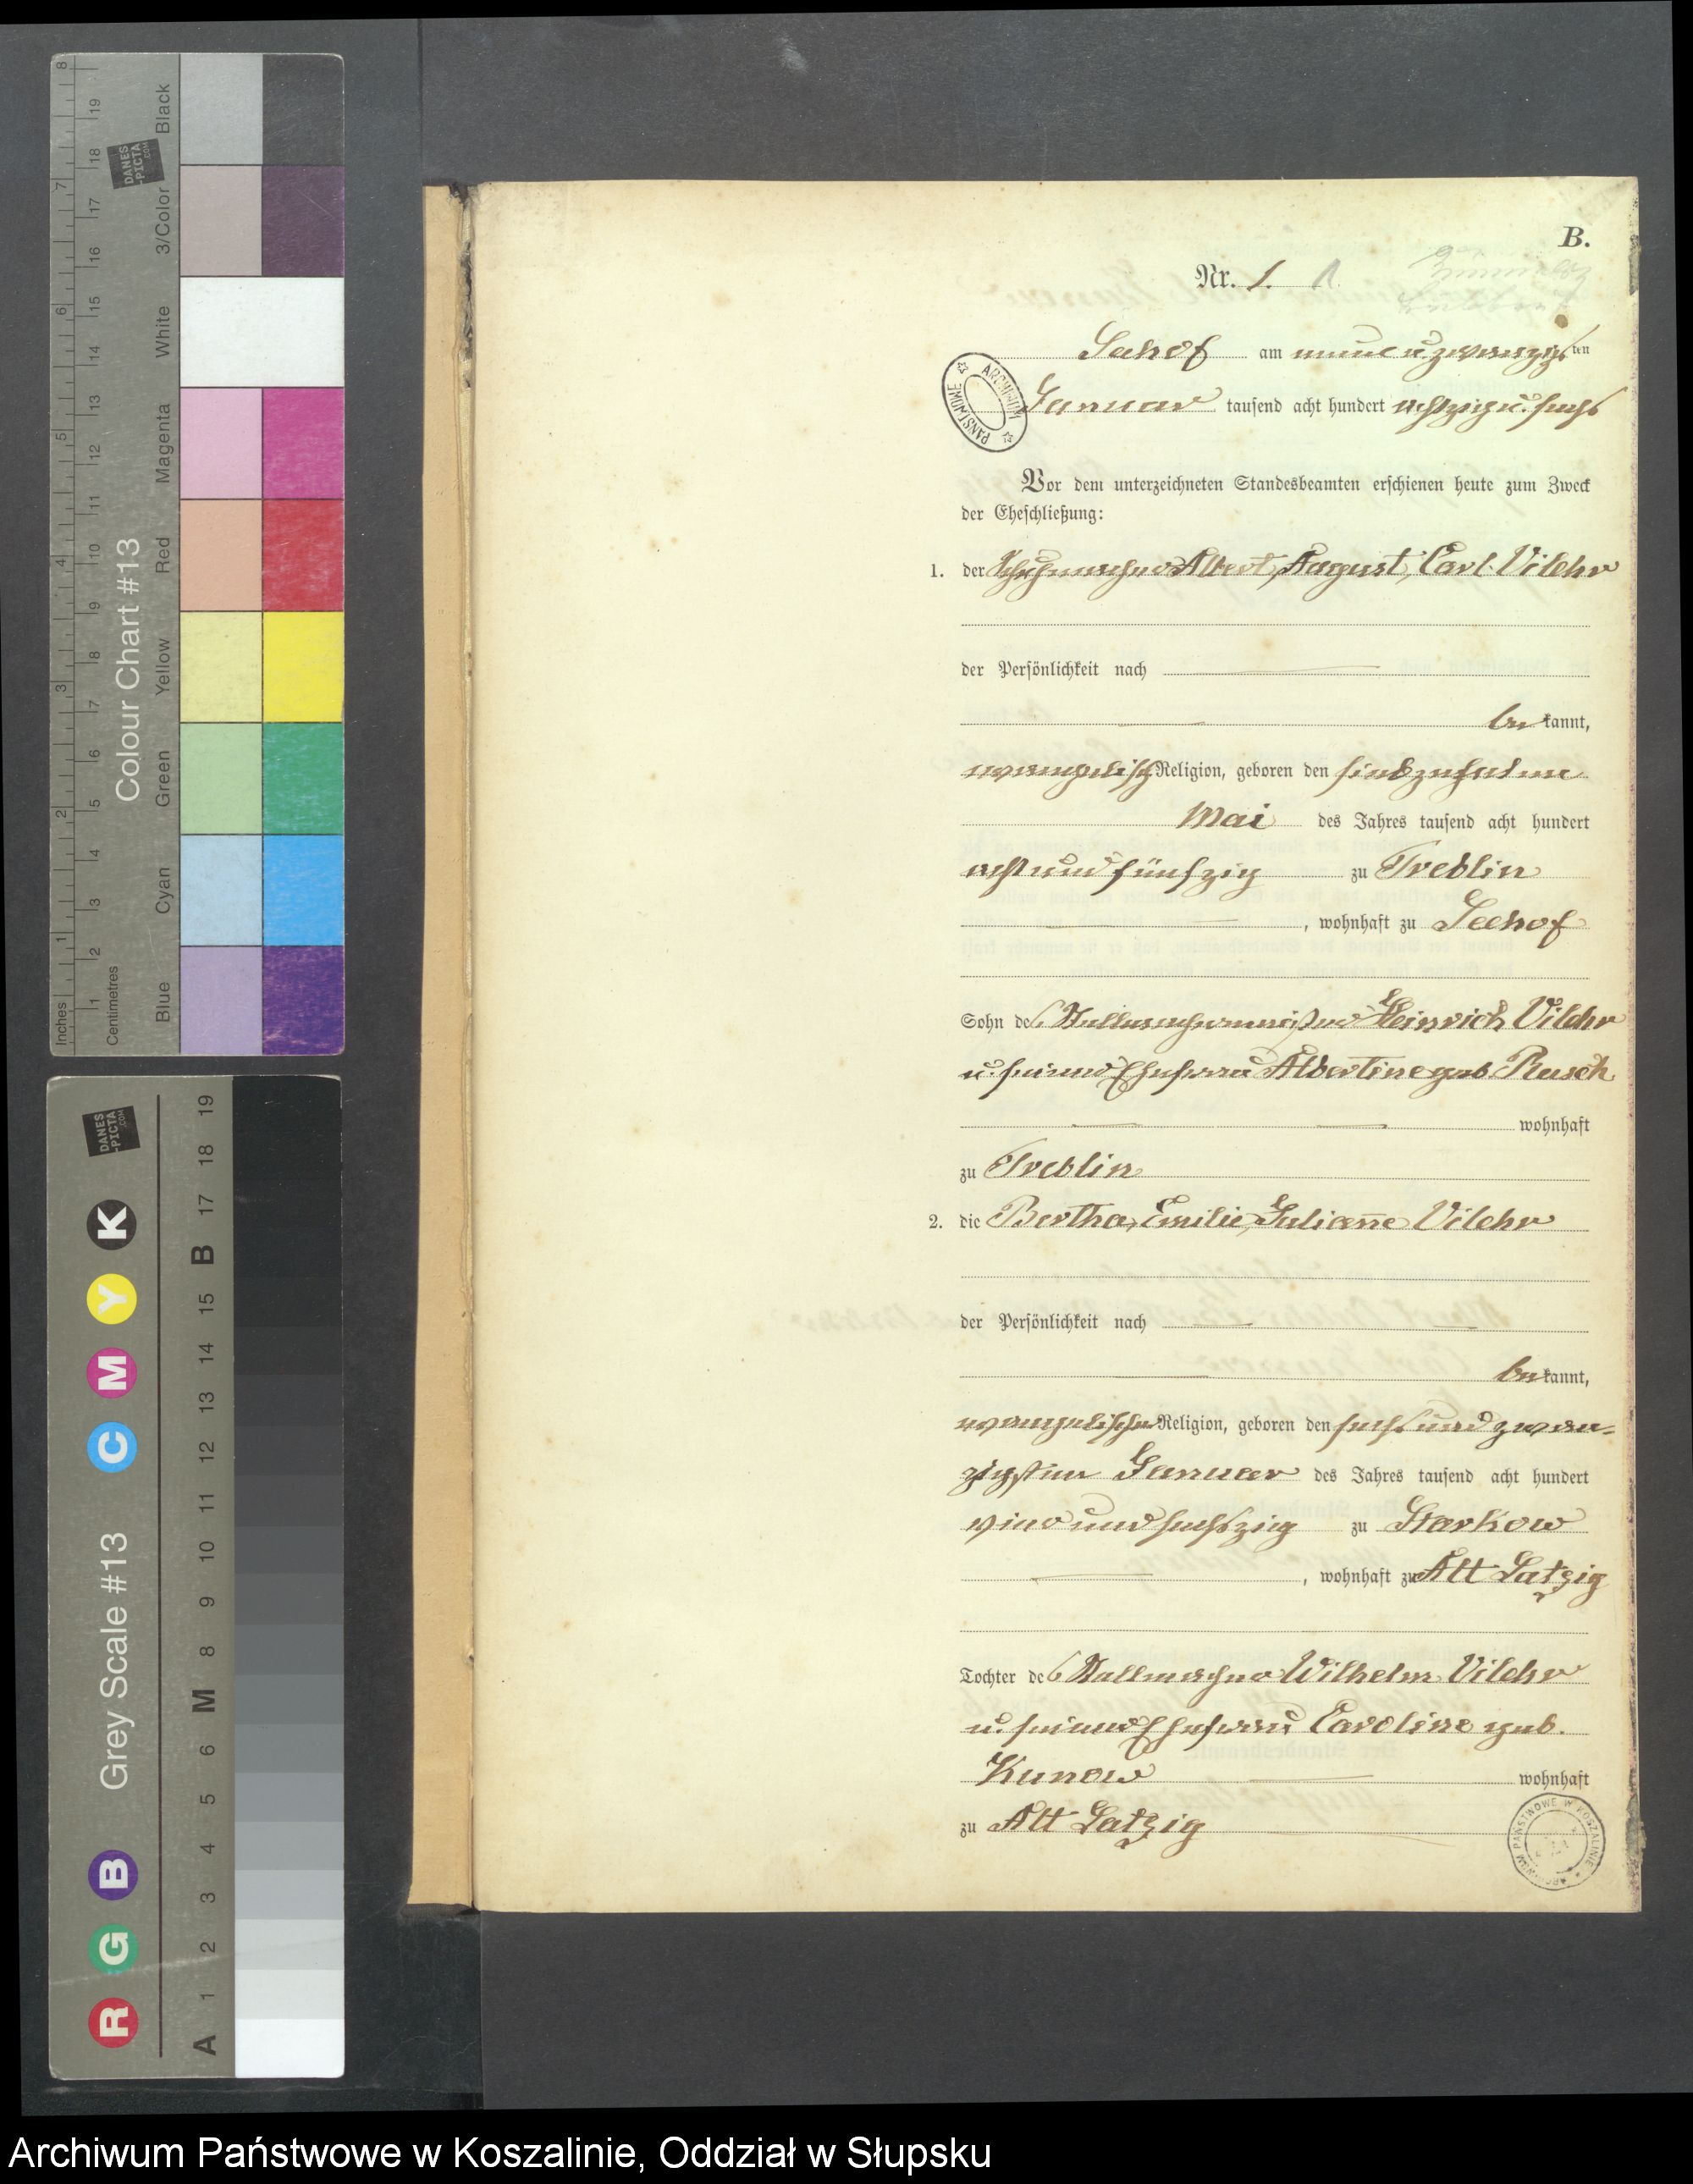 8
7
6
5
4
3
2
1
Inches
19
18
17
16
15
14
13
12
11
10
9
8
7
6
5
4
3
2
1
Centimetres
DANES
-PICTA
.COM
Colour Chart #13
Black
3/Color
White
Magenta
Red
Yellow
Green
Cyan
Blue
DANES
-PICTA
.COM
Grey Scale #13
R G B C M Y K
A 1 2 3 4 5 6 M 8 9 10 11 12 13 14 15 B 17 18 19
B.
Nr. 1.
Sehof am neunuzwanzigsten
ARCHIWUM PAŃSTWOWE
Januar tausend acht hundert achtzig u. sechs
Vor dem unterzeichneten Standesbeamten erschienen heute zum Zweck
der Eheschließung:
1. der Schuhmacher Albert, August, Carl Vilehr
der Persönlichkeit nach
be kannt,
evangelisch Religion, geboren den siebzehnten
Mai des Jahres tausend acht hundert
acht und fünfzig zu Treblin
, wohnhaft zu Seehof
Sohn des Stellmachermeister Heinrich Vilehr
u. seiner Ehefrau Albertine geb Rusch
wohnhaft
zu Treblin
2. die Bertha, Emilie, Julianne Vilehr
der Persönlichkeit nach
be kannt,
evangelischer Religion, geboren den sechs und zwan=
zigsten Januar des Jahres tausend acht hundert
vier und sechszig zu Starkow
, wohnhaft zu Alt Latzig
Tochter des Stellmacher Wilhelm Vilehr
u. seiner Ehefrau Caroline geb.
Kunow wohnhaft
zu Alt Latzig
ARCHIWUM PAŃSTWOWE W KOSZALINIE
Archiwum Państwowe w Koszalinie, Oddział w Słupsku